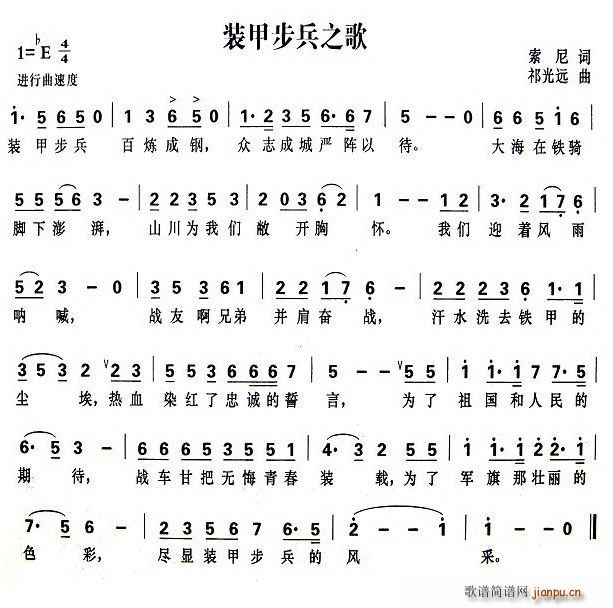 装甲步兵之歌
1=♭E 4/4
索尼 词
进行曲速度
祁光远 曲
1· 5 6 5 0 | 1 3 6 5 0 | 1· 2 6 5 3 6· 2 | 5 - - 0 | 6 6 5 1 6 |
装 甲步兵 百炼成钢, 众志成城严阵以 待。 大海在铁骑
5 5 5 5 6 3 - | 2 2 3 5 3 2 | 2 0 3 6 2 | 1 - - 1 2 | 3· 2 1 7 6 |
脚下澎 湃, 山川为我们 敝 开胸 怀。我们 迎 着风雨
5 2 3 - 0 | 3 5 3 6 1 | 2 2 1 7 6 - - 0 | 2 2 2 3 6 1· 1 |
呐 喊, 战友啊兄弟 并肩奋 战, 汗水洗去铁甲的
3 5 3 - 2 3 | 5 5 3 2 6 6 6 7 | 5 - - 5 5 | 1· 1 1 7 7· 5 |
尘 埃,热血 染红了忠诚的誓 言, 为了 祖国和人民的
6· 5 3 - | 6 6 6 5 3 5 5 1 | 3· 3 2 - 5 5 | 2· 2 2 2 2· 1 |
期 待, 战车甘把无悔青春 装 载,为了 军旗那壮丽的
7· 5 6 - | 2 2 3 5 6 7 6· 5 | 1 - - - | 1 - - 0 ‖
色 彩, 尽显装甲步兵的 风 采。
歌谱简谱网
jianpu.cn